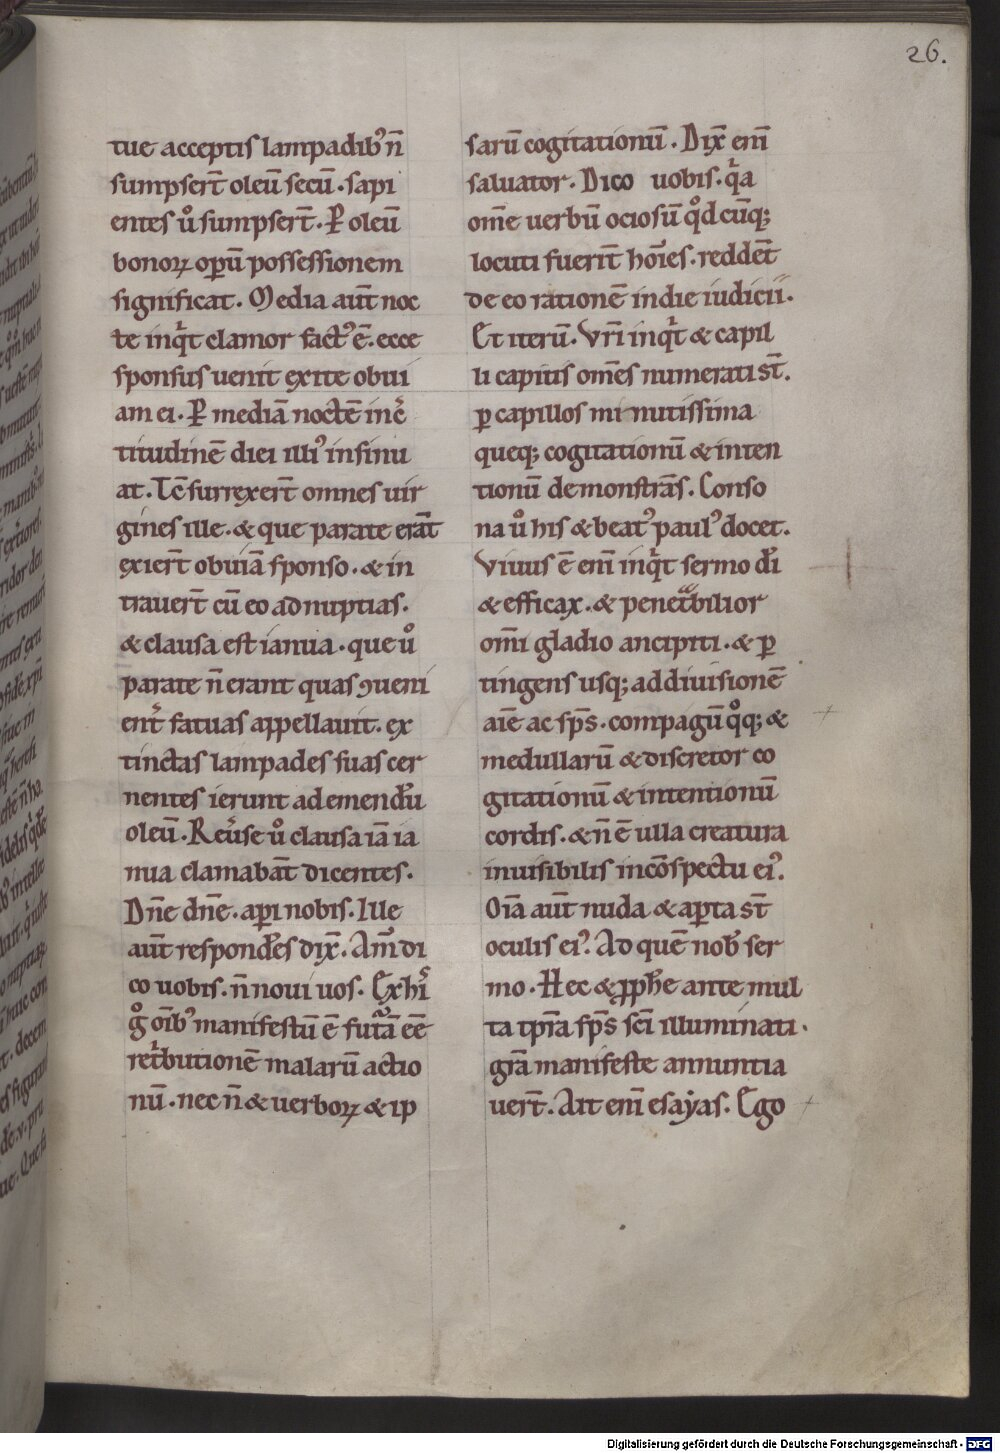 26.
tue acceptis lampadib᾿ n̄
sumpser̄t oleū secū. sapi
entes ů sumpser̄t. P̲ oleū
bonoꝝ oꝑū possessionem
significat. Media aūt noc
te inqͥt clamor fact᾿ ē. ecce
sponsus uenit exite obui
am ei. P̲ mediā noctē inc̓
titudinē diei illi᾿ insinu
at. Tc̄ surrexer̄t omnes uir
gines ille. & que parate erāt
exier̄t obuiā sponso. & in
trauer̄t cū eo ad nuptias.
& clausa est ianua. que ů
parate n̄ erant quas ꝯueni
ent̓ fatuas appellauit. ex
tinctas lampades suas cer
nentes ierunt ad emendū
oleū. Reu̓se ů clausa iā ia
nua clamabāt dicentes.
Dn̄e dn̄e. aꝑi nobis. Ille
aūt respondēs dix̄. Am̄ di
co uobis. n̄ noui uos. Ex hͥ
g̊ oīb᾿ manifestū ē futᵃā eē
retͥbutionē malarū actio
nū. nec n̄ & uerboꝝ & ip
sarū cogitationū. Dix̄ eni̅
saluator. Dico uobis. qͥa
om̄e uerbū ociosū qd̊ cūq;
locuti fuerīt hōīes. reddēt
de eo rationē in die iudicii.
Et iterū. Vr̄i inqͥt & capil
li capitis om̄es numerati st̄.
ꝑ capillos minutissima
queq; cogitationū & inten
tionū demonstrās. Conso
na ů his & beat᾿ paul᾿ docet.
Viuus ē eni̅ inqͥt sermo dī
& efficax. & penetᵃbilior
om̄i gladio ancipiti. & ꝑ
tingens usq; ad diuisionē
aīe ac sp̄s. compagū qͦq; &
medullarū & discretor co
gitationū & intentionū
cordis. & n̄ ē ulla creatura
inuisibilis in cōspectu ei᾿.
Oīa aūt nuda & aꝑta st̄
oculis ei᾿. Ad quē nob̄ ser
mo. Hec & ꝓph̄e ante mul
ta tp̄ra sp̄s sc̄i illuminati.
gr̄a manifeste annuntia
uer̄t. Ait eni̅ esayas. Ego
Digitalisierung gefördert durch die Deutsche Forschungsgemeinschaft - DFG